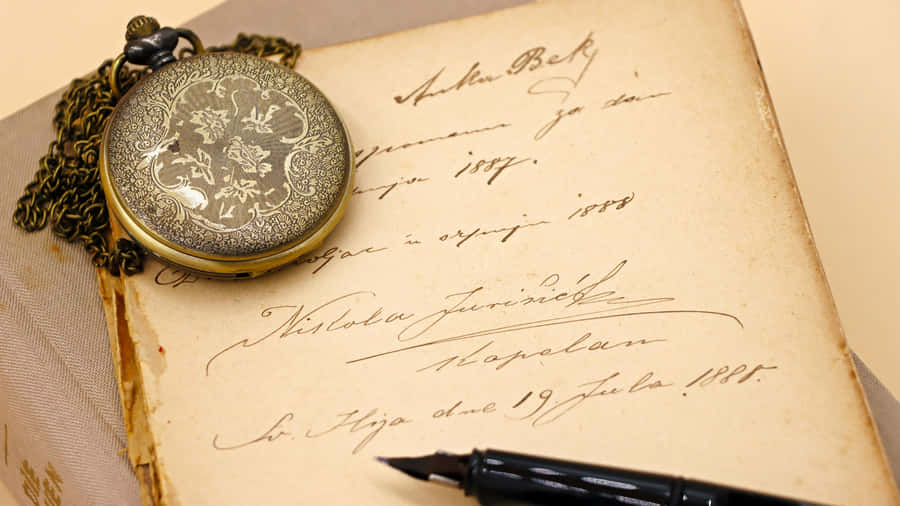 Anka Bek
za dan
1887.
u srpnju 1888
Nikola Jurišić
Kapelan
Sv. Ilija dne 19 Jula 1888.
DIE